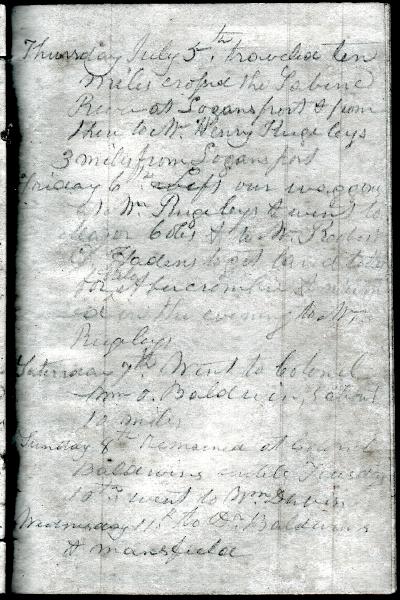 Thursday July 5th, traveled ten
miles crossed the Sabine
River at Logansport & from
there to Mr. Henry Rugeleys
3 miles from Logansport
Friday 6th Left our waggons
at Mr Rugeleys & went to
Major Coles & to Mr. Robert
to get
Abercrombie &
ed in the evening to Mr
Rugeleys
Saturday 7th Went to Colonel
Wm O. Baldwin's about
10 miles
Sunday 8th remained at Colonel
Baldwins until Tuesday
10th went to Wm
Wednesday 11th to Dr Baldwins
& mansfield